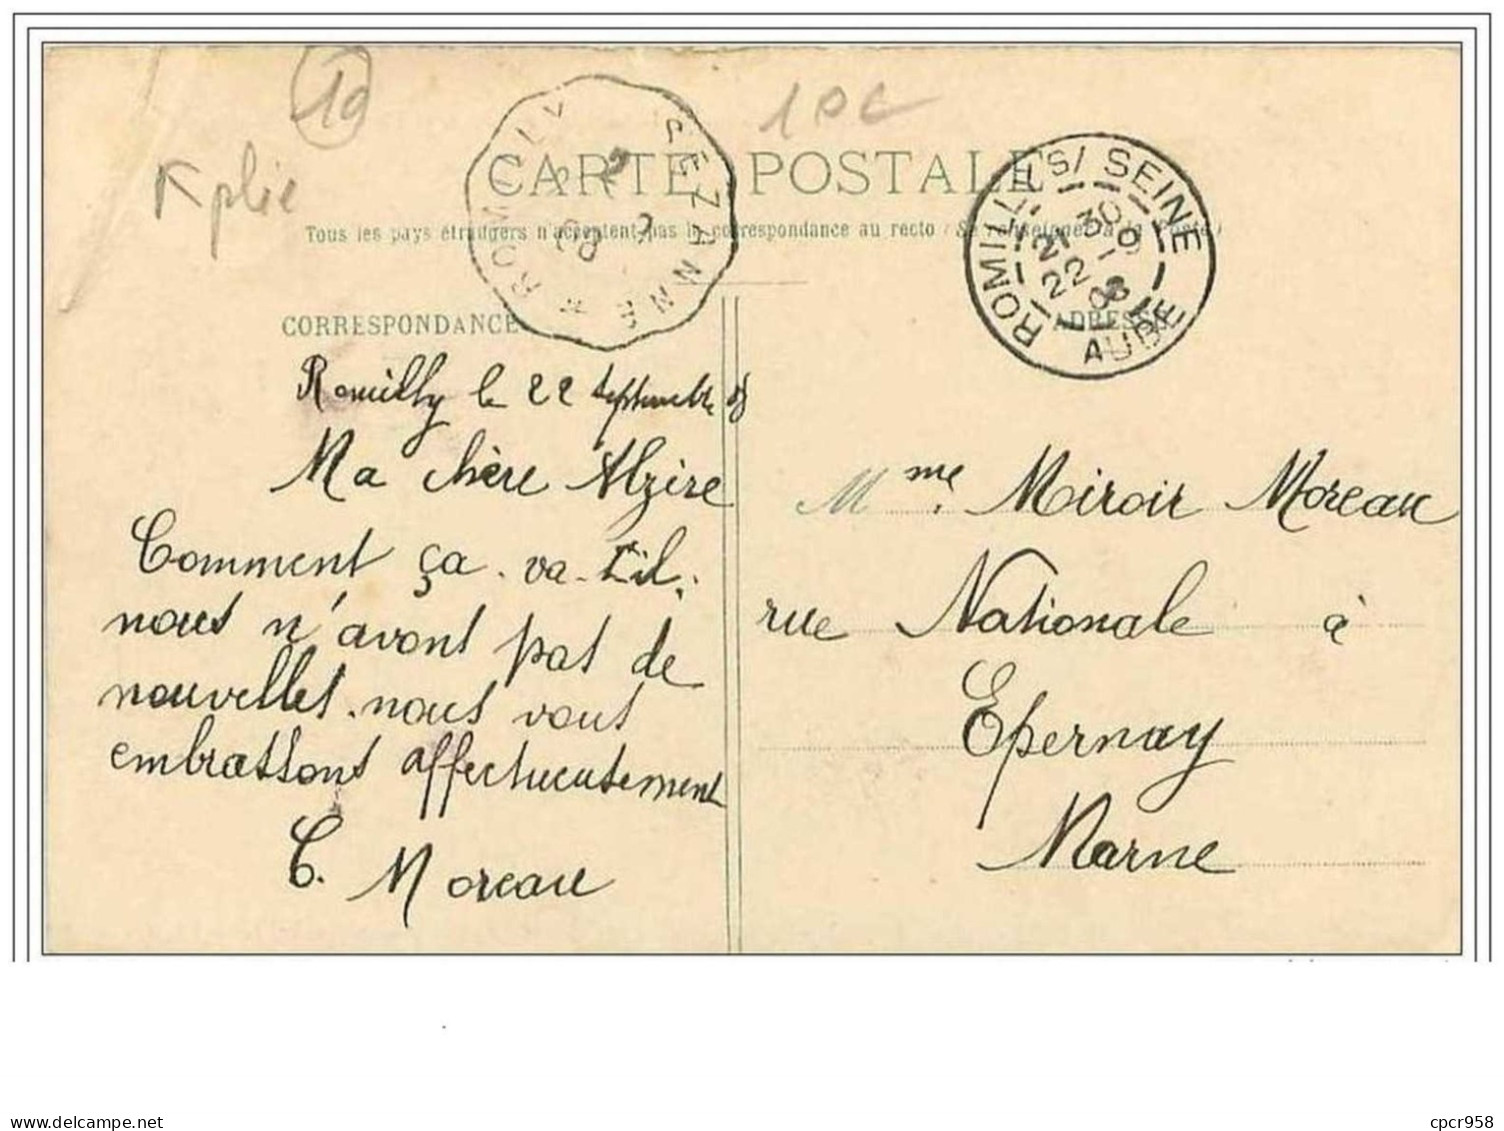 10
1 0 C
K plié
CARTE POSTALE
Tous les pays étrangers n'acceptent pas la correspondance au recto (Se renseigner à la Poste)
ROMILLY * SÉZANNE
08
ROMILLY S/ SEINE
21 30
22 - 9
08
AUBE
CORRESPONDANCE
ADRESSE
Romilly le 22 septembre 08
Ma chère Alzire
Comment ça va-t'il.
nous n'avons pas de
nouvelles. nous vous
embrassons affectueusement
C. Moreau
Mme. Miroir Moreau
rue Nationale à
Epernay
Marne
cpcr958